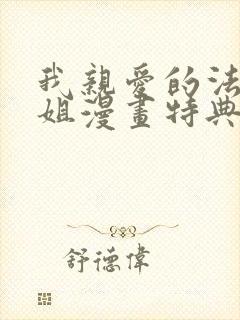 我親愛的法
姐漫畫特典
舒德偉